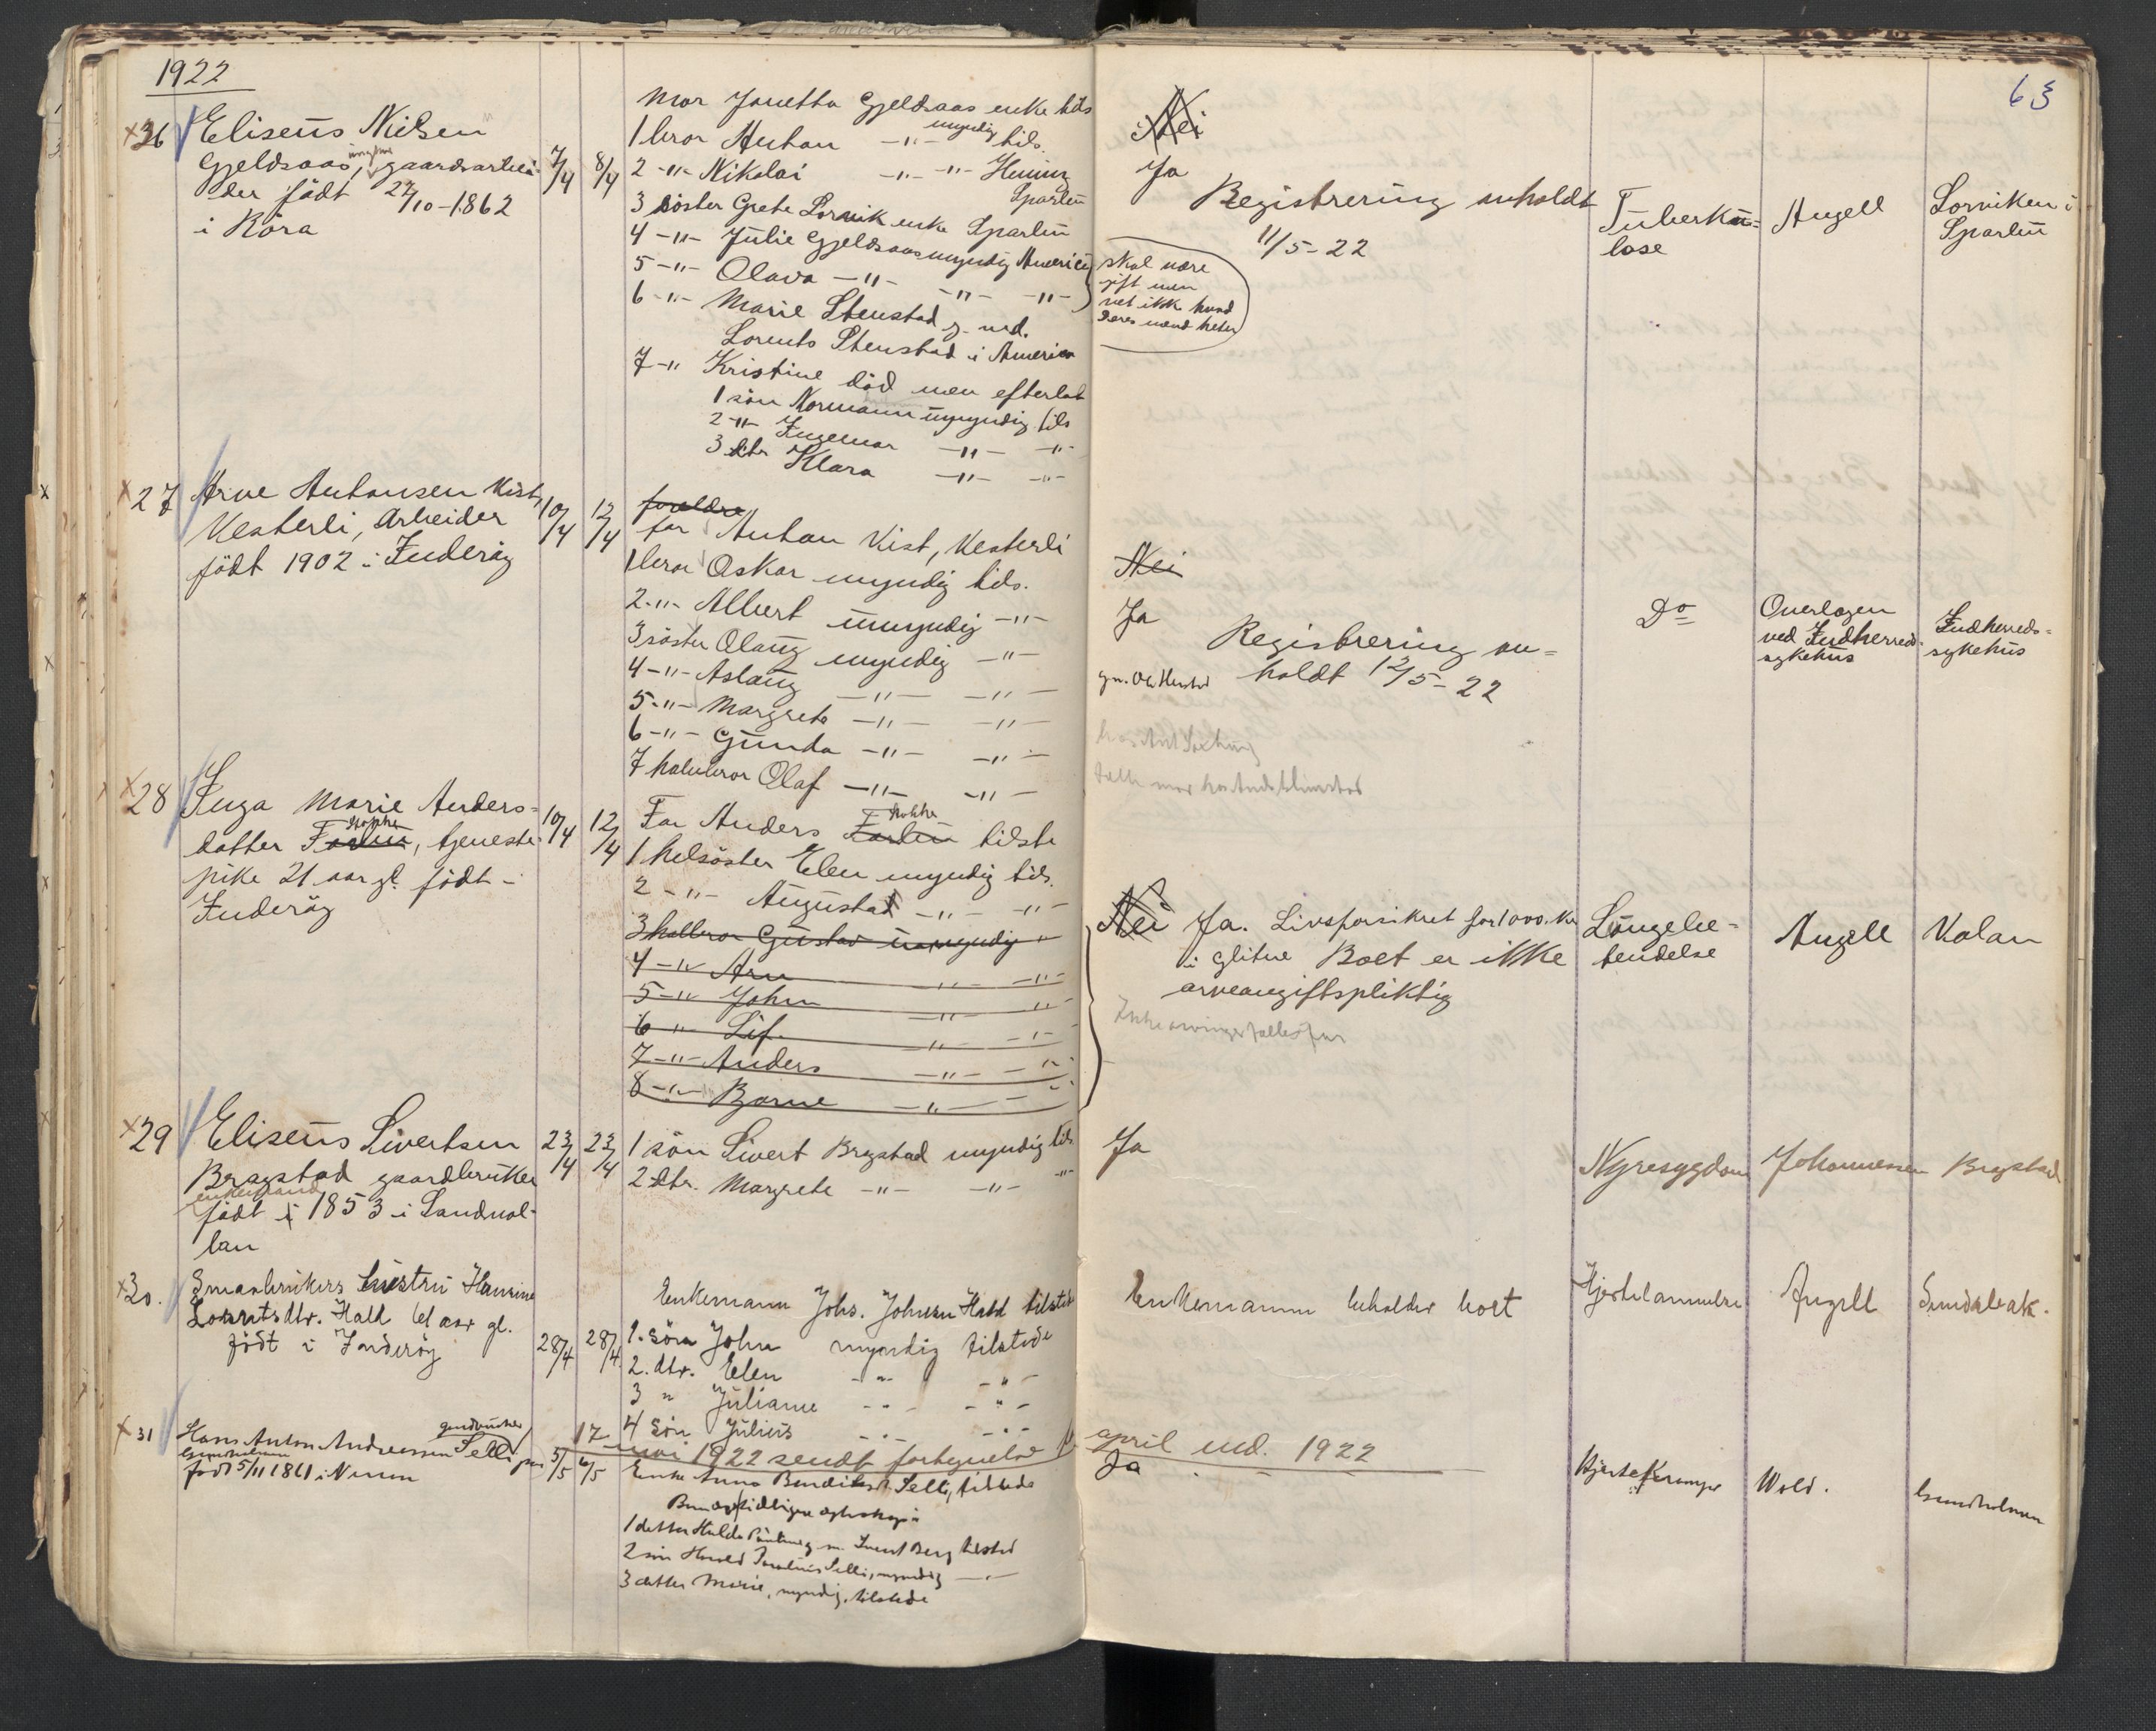 1922
63
x26 Eliseus Nielsen
Gjeldsaas, ungkar gaardsarbei-
der født 27/10-1862
i Røra
7/4 8/4
Mor Jonetta Gjeldsaas enke tils
1 bror Anton -"- myndig tils.
2 -"- Nikolai -"- -"- Henning
Sparbu
3 søster Grete Lorvik enke Sparbu
4 -"- Julie Gjeldsaas myndig America
5 -"- Olava -"- -"- -"-
6 -"- Marie Stenstad g. med.
Lorents Stenstad i America
7 -"- Kristine död men efterlot
1 sön Normann umyndig tils
2 -"- Ingemar -"- -"-
3 dtr Klara -"- -"-
Nei
Ja
Registrering anholdt
11/5-22
skal være
gift men
vet ikke hvad
deres mænd heter
Tuberku=
lose
Angell
Lorviken i
Sparbu
x27 Arne Antonsen Kist,
Vesterli, Arbeider
født 1902 i Inderøy
10/4 12/4
foreldre
far Anton Kist, Vesterli
1 bror Oskar myndig tils.
2 -"- Albert umyndig -"-
3 søster Olaug myndig -"-
4 -"- Aslaug -"- -"-
5 -"- Margrete -"- -"-
6 -"- Gunda -"- -"-
7 halvbror Olaf -"- -"-
Nei
Ja
Registrering an=
holdt 12/5-22
Do
Overlægen
ved Indherreds-
sykehus
Indherreds=
sykehus
x28 Inga Marie Anders=
datter Forbu, tjeneste-
pike 21 aar gl. født i
Inderøy
10/4 12/4
Far Anders Forbu tilste
1 helsøster Elen myndig tils.
2 -"- Augusta -"- -"-
3 halbror Gustav umyndig "
4 -"- Arn -"- -"-
5 -"- John -"- -"-
6 " Lif -"- -"-
7 -"- Anders -"- -"-
8 -"- Bjarne -"- -"-
Nei Ja. Livsforsikret for 1000. Kr
i Glitne Boet er ikke
arveavgiftspliktig
Lungebe=
tendelse
Angell
Kolan
x29 Eliseus Sivertsen
Bragstad gaardbruker
enkemand
født i 1853 i Sandvol-
lan
23/4 23/4
1 sön Sivert Bragstad myndig tils
2 dtr. Margrete -"- -"- -"-
Ja
Nyresygdom
Johannessen
Bragstad
x30. Smaabrukers hustru Hansine
Lorntsdtr. Hald 61 aar gl.
født i Inderøy
28/4 28/4
Enkemann Johs. Johnsen Hald tilstede
1. søn John myndig tilstede
2. dtr. Elen -"- -"-
3 " Juliane -"- -"-
4 søn Julius -"- -"-
Enkemannen beholder boet
Hjertelammelse
Angell
Sundsbak.
17 mai 1922 sendt fortegnelse f april md. 1922
x31 Hans Anton Andreassen Selli
født 5/11 1861 i
5/5 6/5
Enke Anna Selli, tilstede
1 datter Hulda g. m. Berg tilsted
2 søn Harald Selli, myndig -"-
3 datter Marie, myndig, tilstede
Ja
Hjertekrampe
Wold.